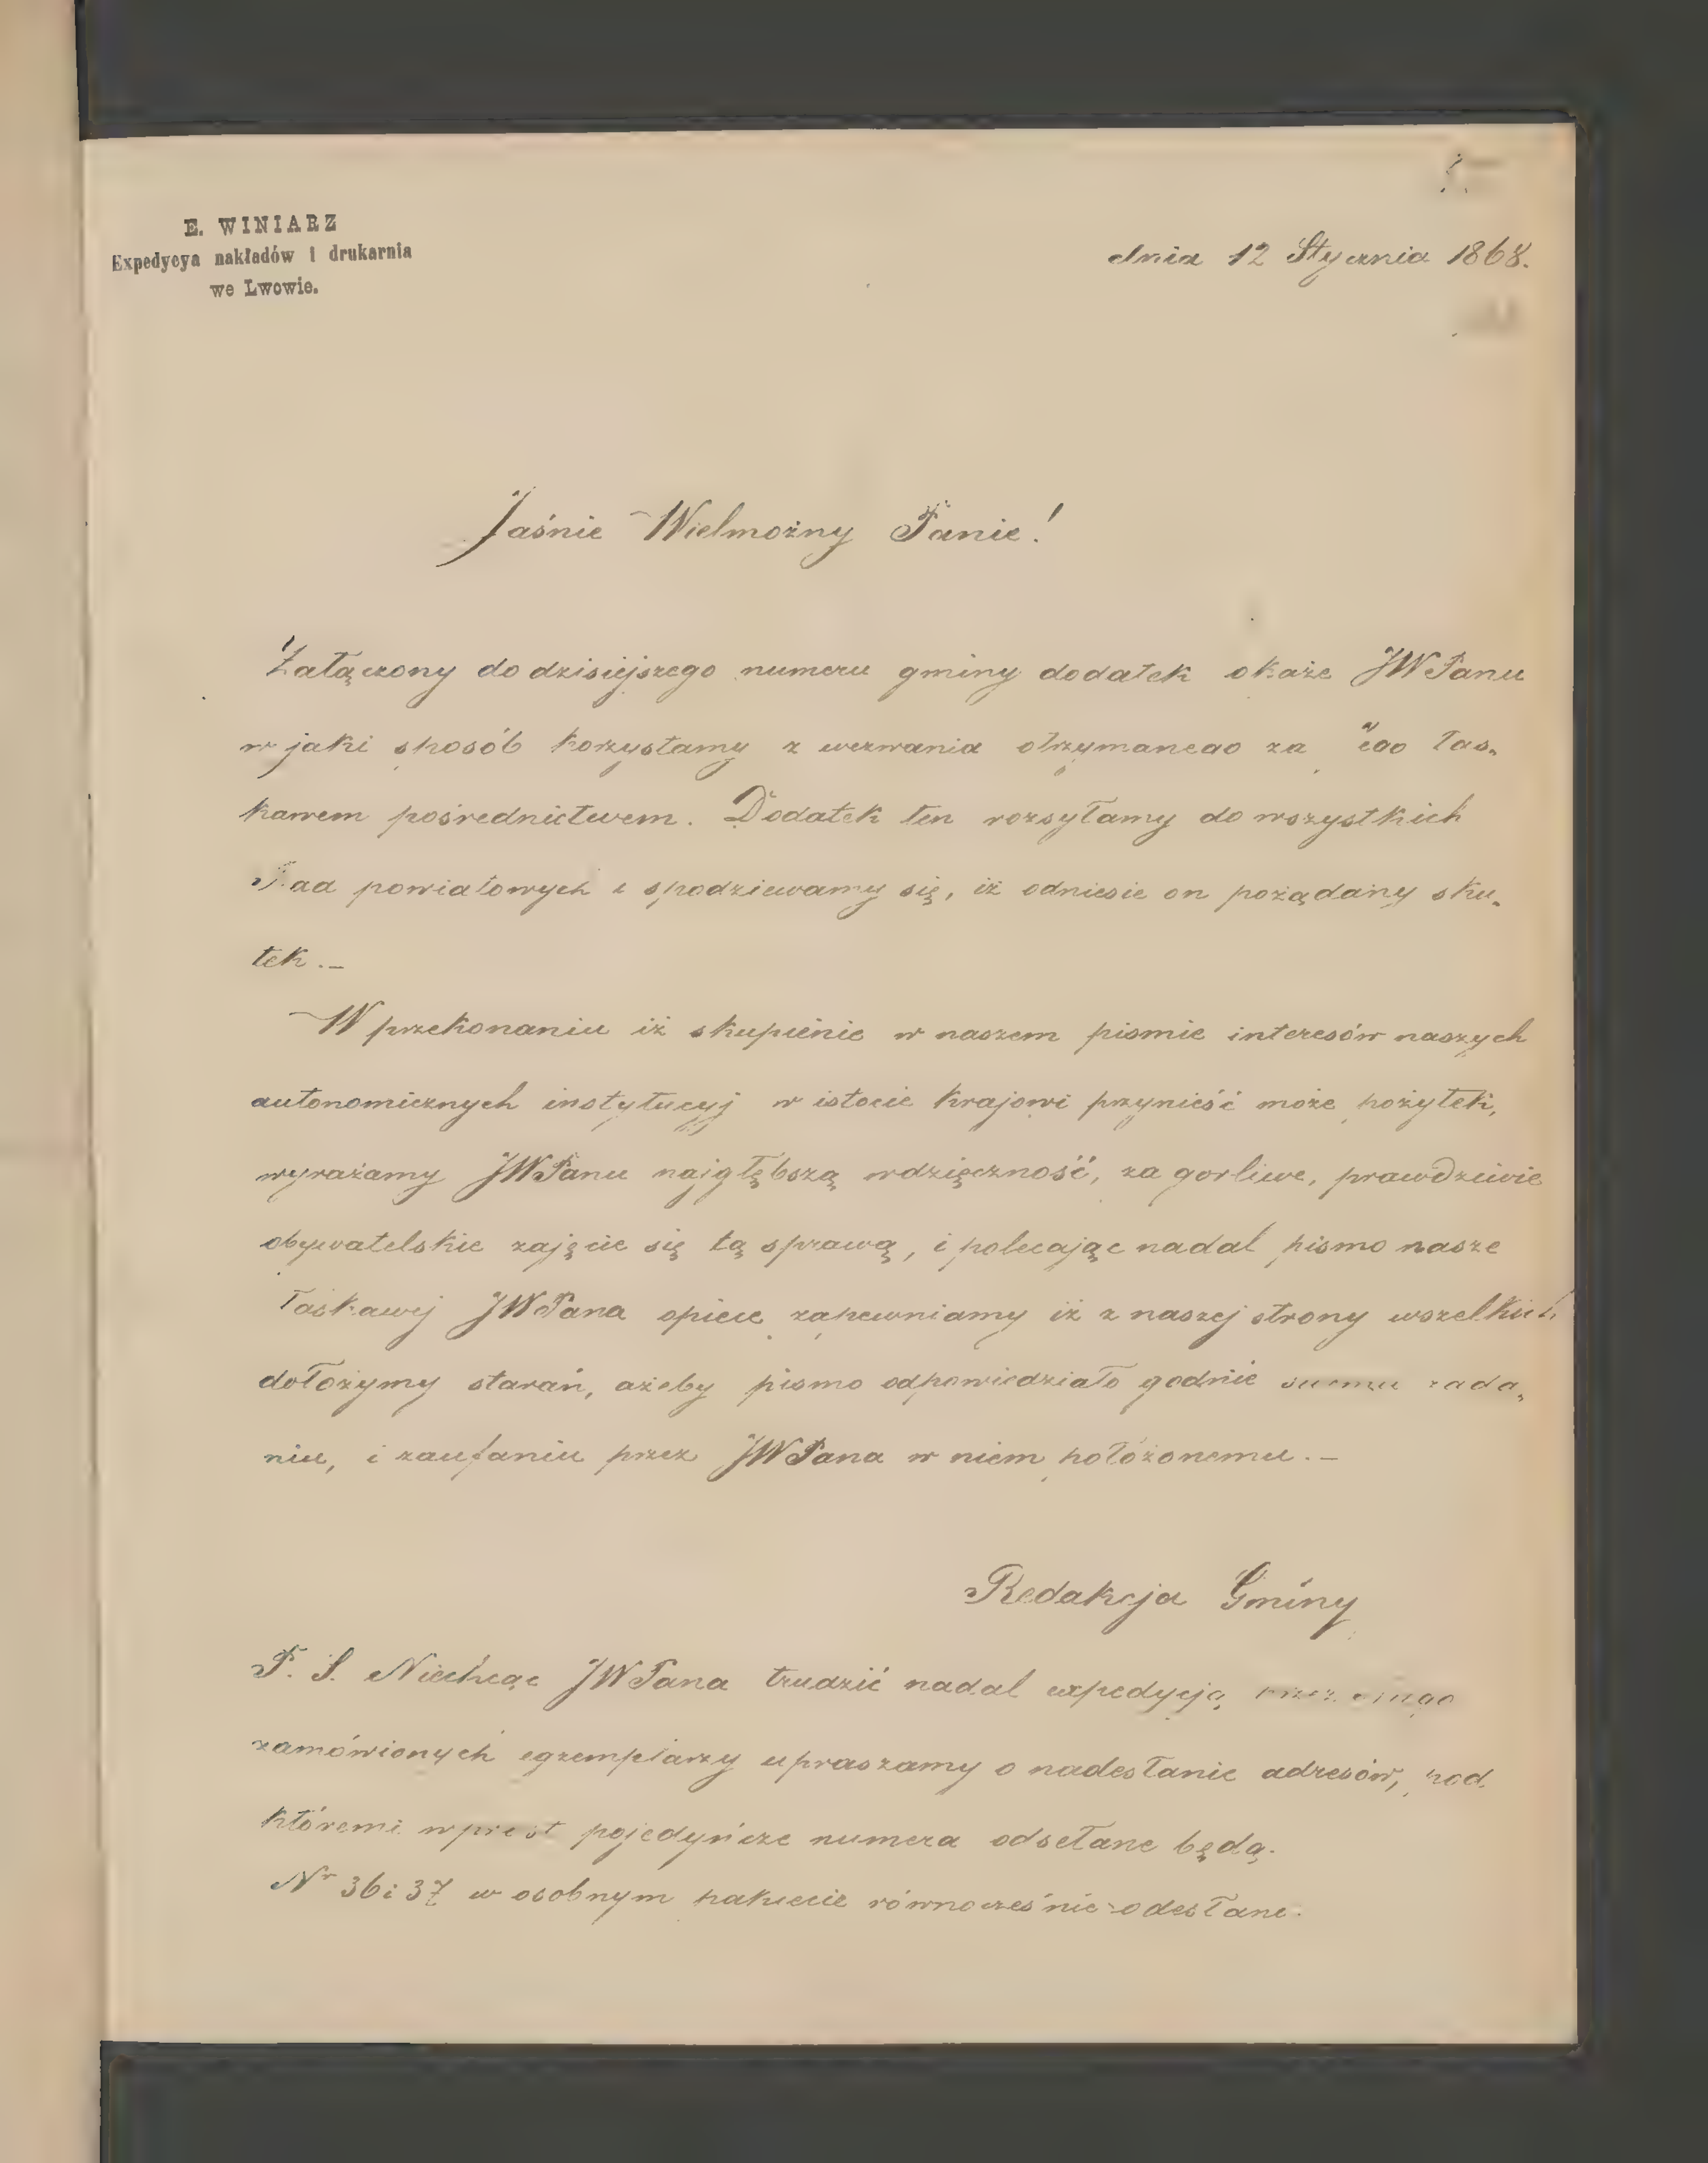 E. WINIARZ
Expedycya nakładów i drukarnia
we Lwowie.
dnia 12 Stycznia 1868.
Jaśnie Wielmożny Panie!
Załączony do dzisiejszego numeru gminy dodatek okaże JWPanu
w jaki sposób korzystamy z wezwania otrzymanego za Jego łas-
kawem pośrednictwem. Dodatek ten rozsyłamy do wszystkich
Rad powiatowych i spodziewamy się, iż odniesie on pożądany sku-
tek.–
W przekonaniu iż skupienie w naszem pismie interesów naszych
autonomicznych instytucyj w istocie krajowi przynieść może pożytek,
wyrażamy JWPanu najgłębszą wdzięczność, za gorliwe, prawdziwie
obywatelskie zajęcie się tą sprawą, i polecając nadal pismo nasze
łaskawej JWPana opiece zapewniamy iż z naszej strony wszelkich
dołożymy starań, ażeby pismo odpowiedziało godnie swemu zada-
niu, i zaufaniu przez JWPana w niem położonemu.–
Redakcja Gminy
P. S. Niechcąc JWPana trudzić nadal expedycją
zamówionych egzemplarzy upraszamy o nadesłanie adresów, pod
któremi wprost pojedyńcze numera odsełane będą.
Nr 36 i 37 w osobnym pakiecie równocześnie odesłane.